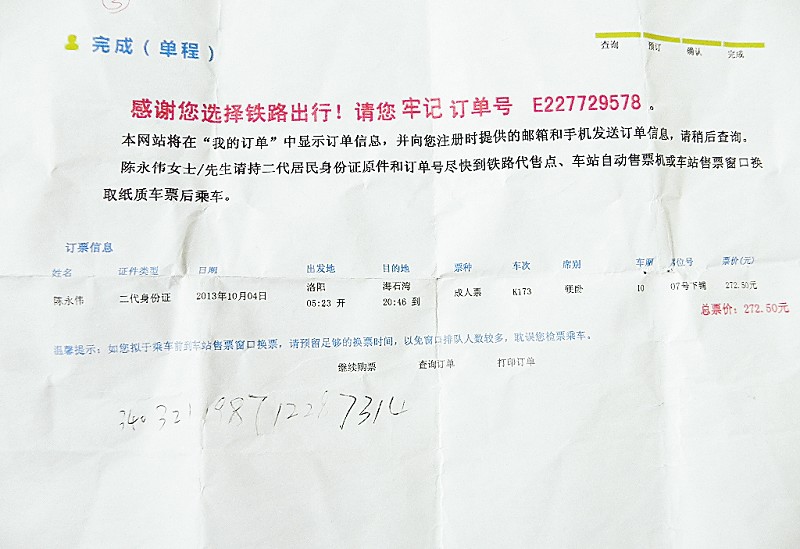 3
完成（单程）
查询 预订 确认 完成
感谢您选择铁路出行！请您 牢记 订单号 E227729578 。
本网站将在“我的订单”中显示订单信息，并向您注册时提供的邮箱和手机发送订单信息，请稍后查询。
陈永伟女士/先生请持二代居民身份证原件和订单号尽快到铁路代售点、车站自动售票机或车站售票窗口换
取纸质车票后乘车。
订票信息
姓名 证件类型 日期 出发地 目的地 票种 车次 席别 车厢 席位号 票价(元)
陈永伟 二代身份证 2013年10月04日 洛阳 海石湾 成人票 K173 硬卧 10 07号下铺 272.50元
05:23 开 20:46 到
总票价：272.50元
温馨提示：如您拟于乘车前到车站售票窗口换票，请预留足够的换票时间，以免窗口排队人数较多，耽误您检票乘车。
继续购票 查询订单 打印订单